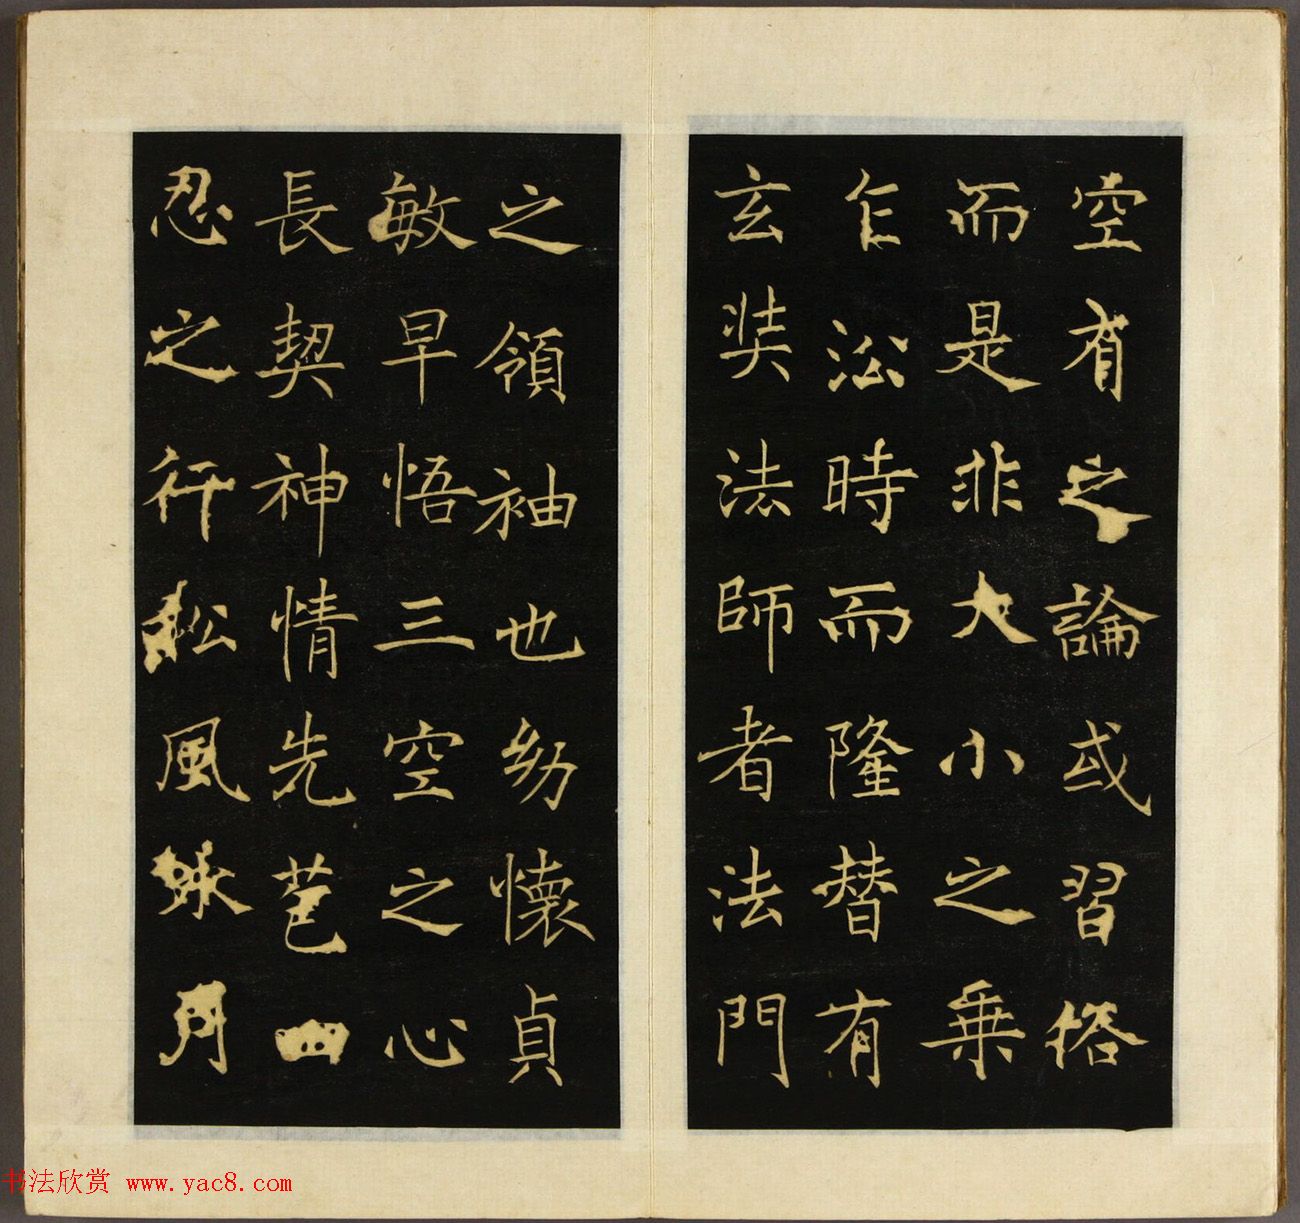 空有之論或習俗
而是非大小之乘
乍㳂時而隆替有
玄奘法師者法門
之領袖也幼懷貞
敏早悟三空之心
長契神情先苞四
忍之行松風水月
书法欣赏 www.yac8.com